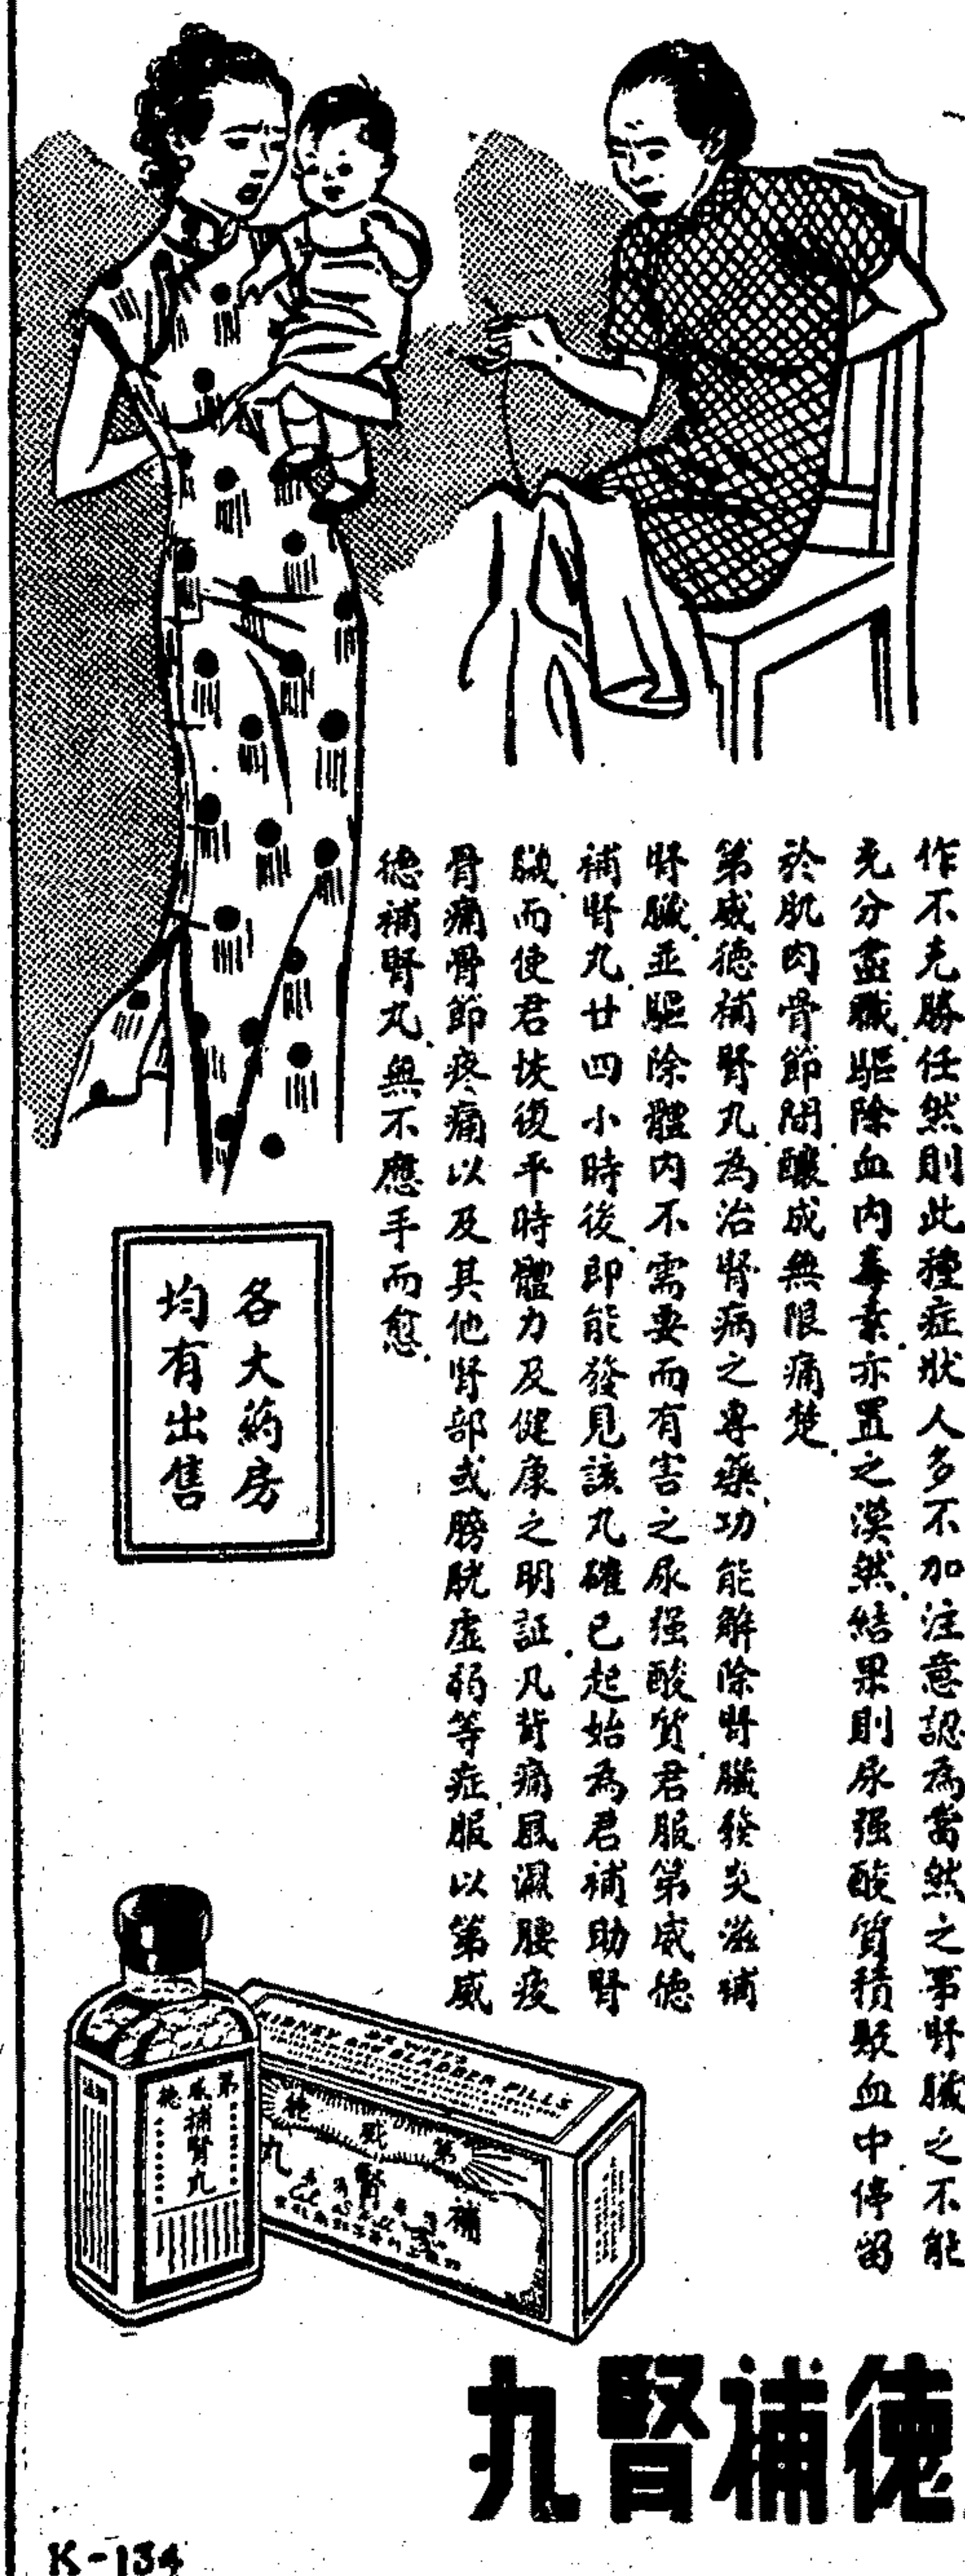 作不克勝任然則此種症狀人多不加注意認為當然之事腎臟之不能
充分盡職驅除血內毒素亦置之漠然結果則尿强酸質積聚血中停留
於肌肉骨節間釀成無限痛楚
第威德補腎丸為治腎病之專藥功能解除腎臟發炎滋補
腎臟並驅除體內不需要而有害之尿强酸質君服第威德
補腎丸廿四小時後即能發見該丸確已起始為君補助腎
臟而使君恢復平時體力及健康之明証凡背痛風濕腰痠
骨痛骨節疼痛以及其他腎部或膀胱虛弱等症服以第威
德補腎丸無不應手而愈
各大葯房
均有出售
第威德
補腎丸
DE WITT'S
KIDNEY AND BLADDER PILLS
第威德
補腎丸
德補腎丸
K-134